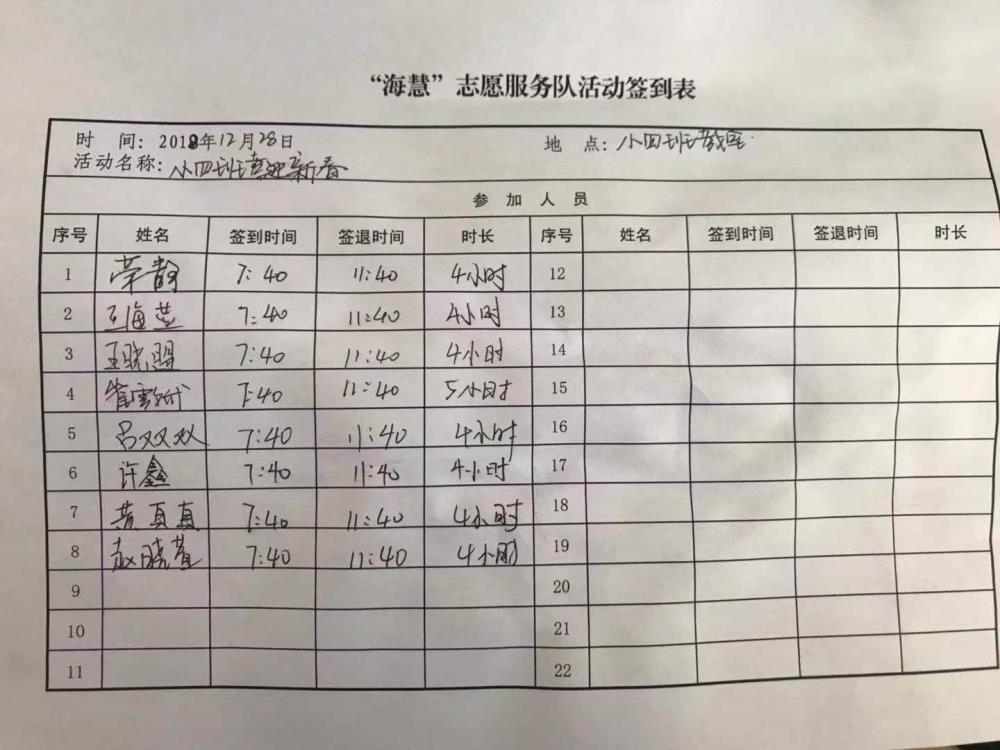 “海慧”志愿服务队活动签到表
时 间：2018年12月28日 地 点：小四班教室
活动名称：小四班喜迎新春
参 加 人 员
序号 姓名 签到时间 签退时间 时长 序号 姓名 签到时间 签退时间 时长
1 荣静 7:40 11:40 4小时 12
2 王海燕 7:40 11:40 4小时 13
3 王晓 7:40 11:40 4小时 14
4 崔雪 7:40 11:40 5小时 15
5 吕双双 7:40 11:40 4小时 16
6 许鑫 7:40 11:40 4小时 17
7 黄真真 7:40 11:40 4小时 18
8 赵晓 7:40 11:40 4小时 19
9 20
10 21
11 22